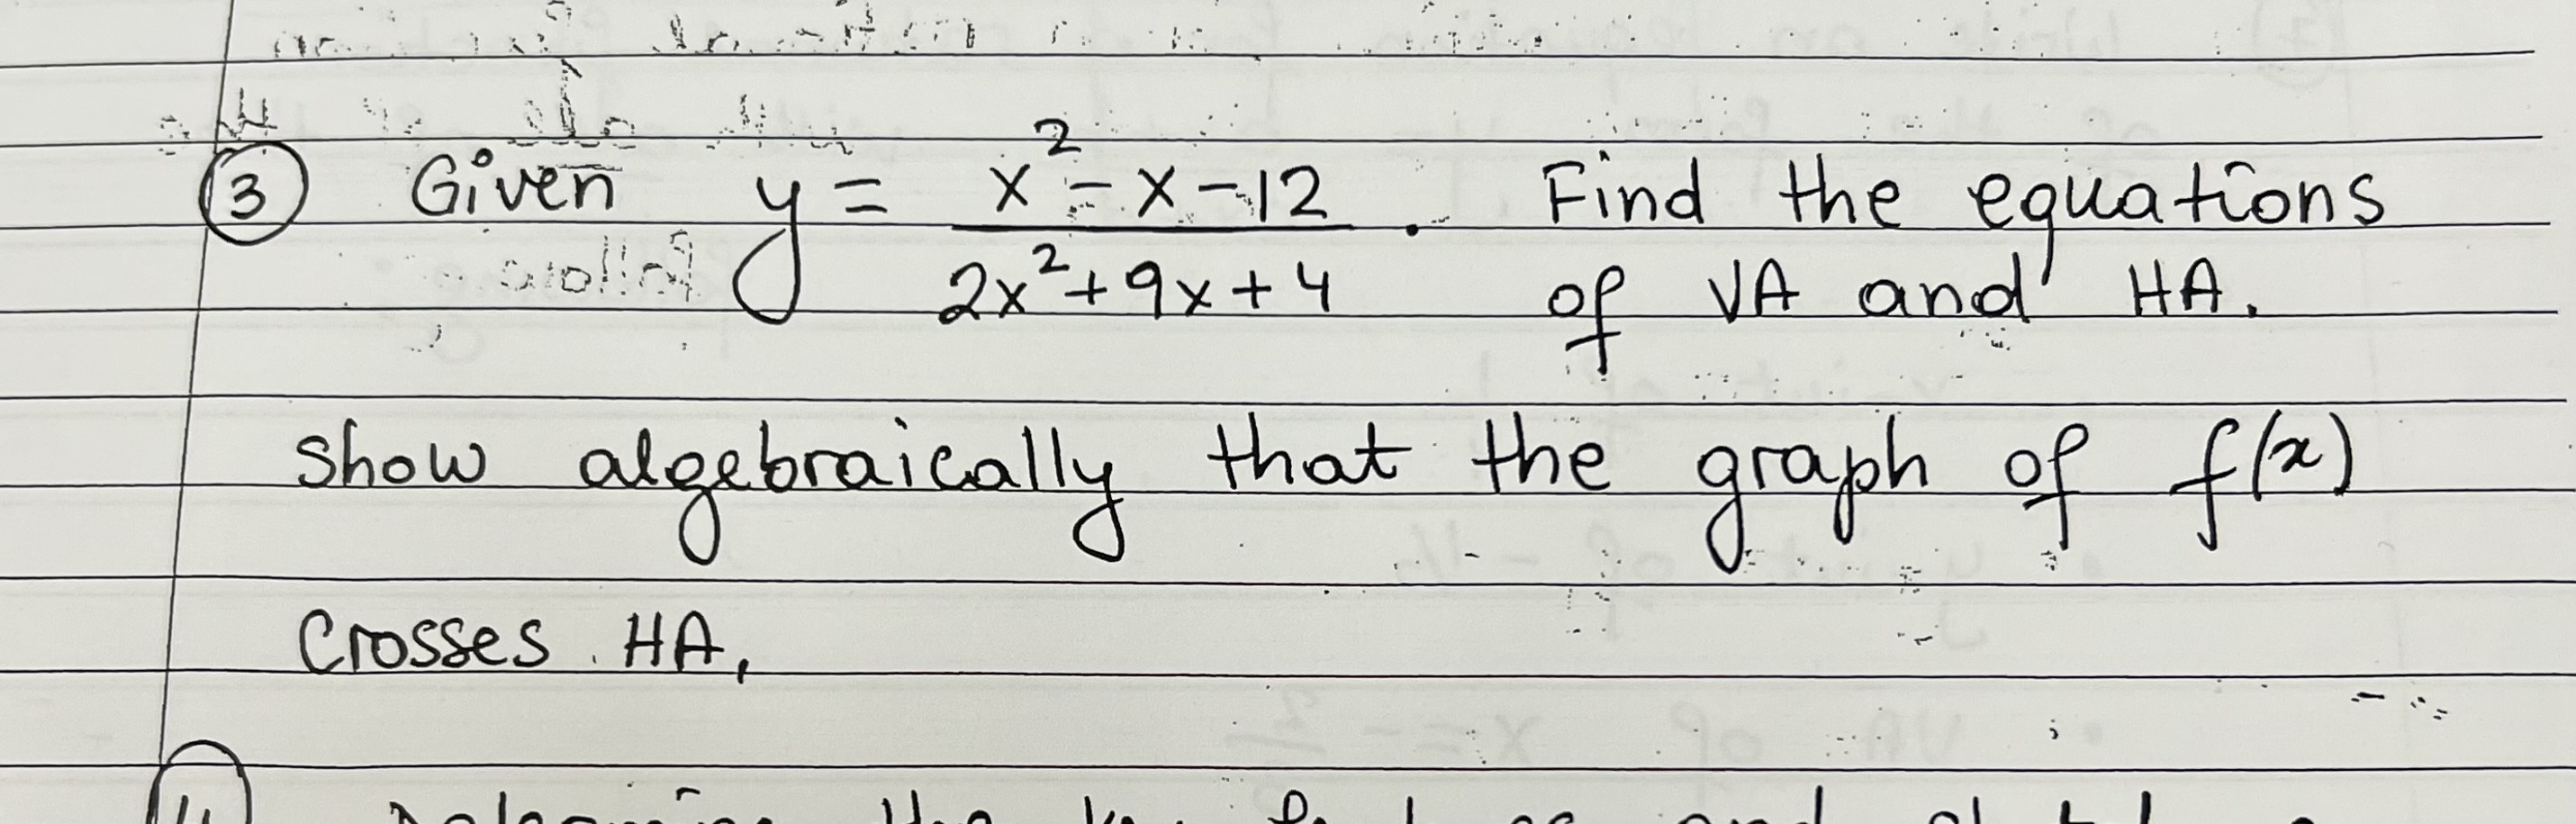 ③ Given y = x² - x - 12 / 2x² + 9x + 4 . Find the equations
of VA and HA.
show algebraically that the graph of f(x)
Crosses HA,